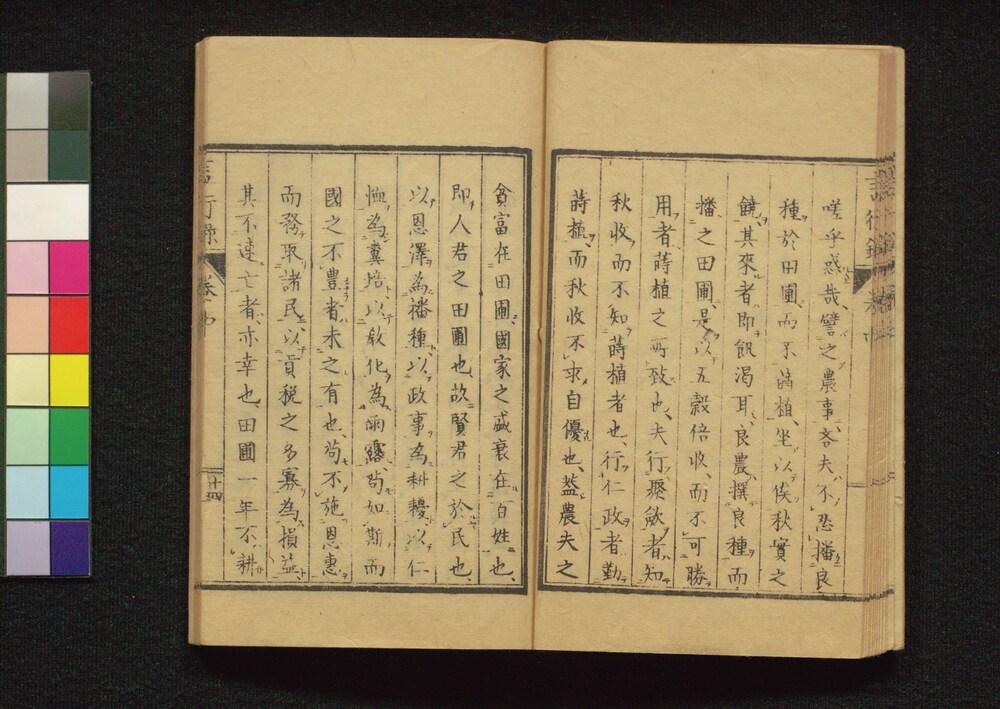 嗟乎惑哉譬之農事吝夫不忍播良
種於田圃而不蒔植坐以俟秋實之
饒其來者即飢渇耳良農撰良種而
播之田圃是以五穀倍收而不可勝
用者蒔植之所致也夫行聚斂者知
秋收而不知蒔植者也行仁政者勤
蒔植而秋收不求自優也蓋農夫之
貪富在田圃國家之盛衰在百姓也
即人君之田圃也故賢君之於民也
以恩澤為播種以政事為耕耰以仁
恤為糞培以敎化為雨露苟如斯而
國之不豊者未之有也苟不施恩惠
而務取諸民以貢税之多寡為損益
其不速亡者亦幸也田圃一年不耕
言行錄
十四